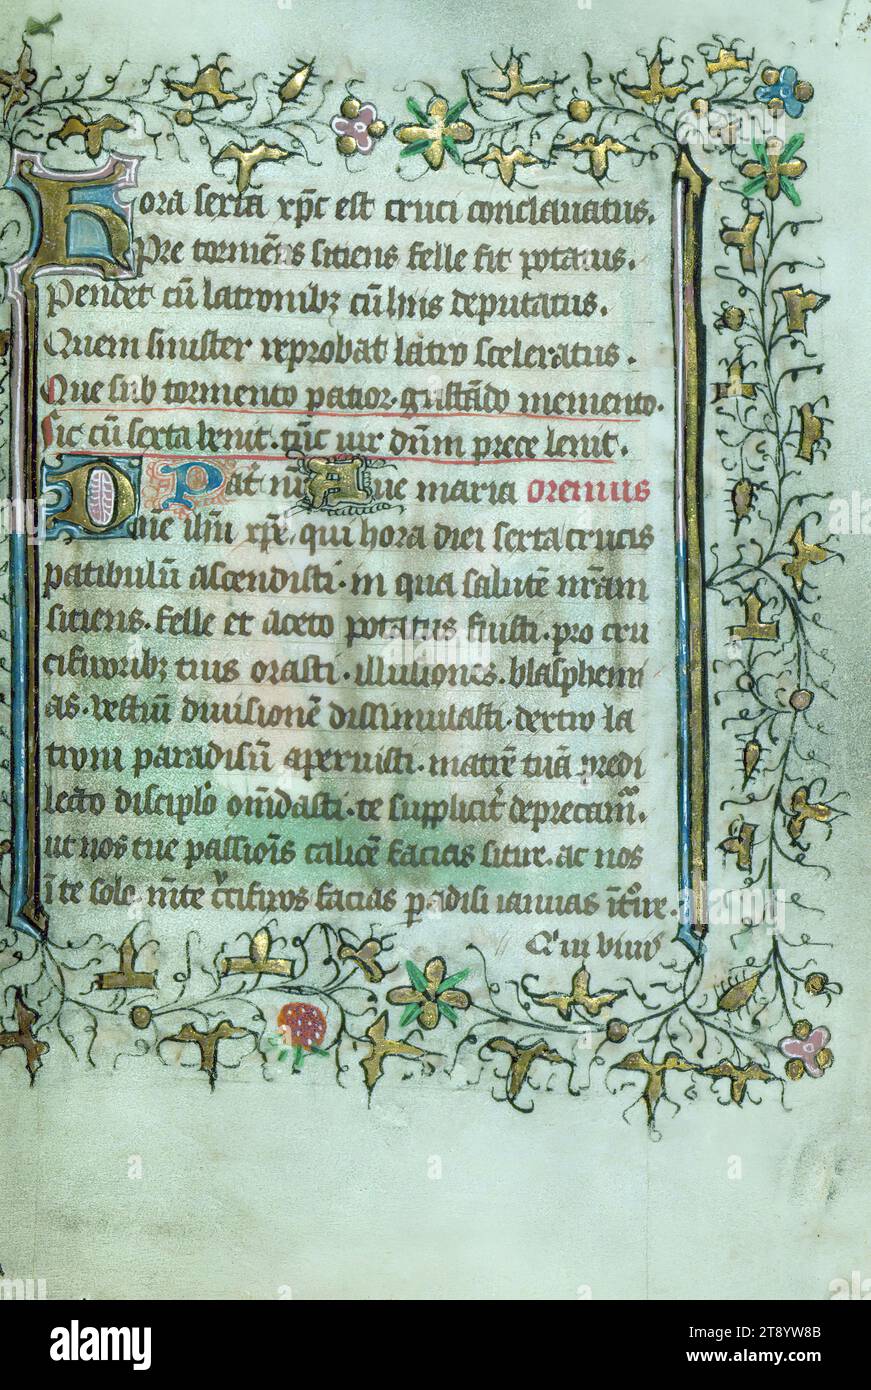 Hora sexta xp̄c est cruci conclauatus.
Pre tormētis sitiens felle fit potatus.
Pendet cū latronibꝫ cū hiis deputatus.
Quem sinister reprobat latro sceleratus.
Que sub tormento patior. gustādo memento.
Sic cū sexta uenit. tūc uir dm̄m prece lenit.
Pat' nr̄ Aue maria oremus
Dn̄e ih̄u xp̄e, qui hora diei sexta crucis
patibulū ascendisti. in qua salutē nr̄am
sitiens. felle et aceto potatus fuisti. pro cru
cifixoribꝫ tuis orasti. illusiones. blasphemi
as. vestiū diuisionē dissimulasti. dextro la
troni paradisū aperuisti. matrē tuā predi
lecto discipło om̄dasti. te supplicit' deprecam'.
ut nos tue passiōis calicē facias sitire. ac nos
ī te sole. mēte crucifixos facias paradisi ianuas ītroire.
Qui viuis
alamy
Image ID: 2T81YW8B
www.alamy.com